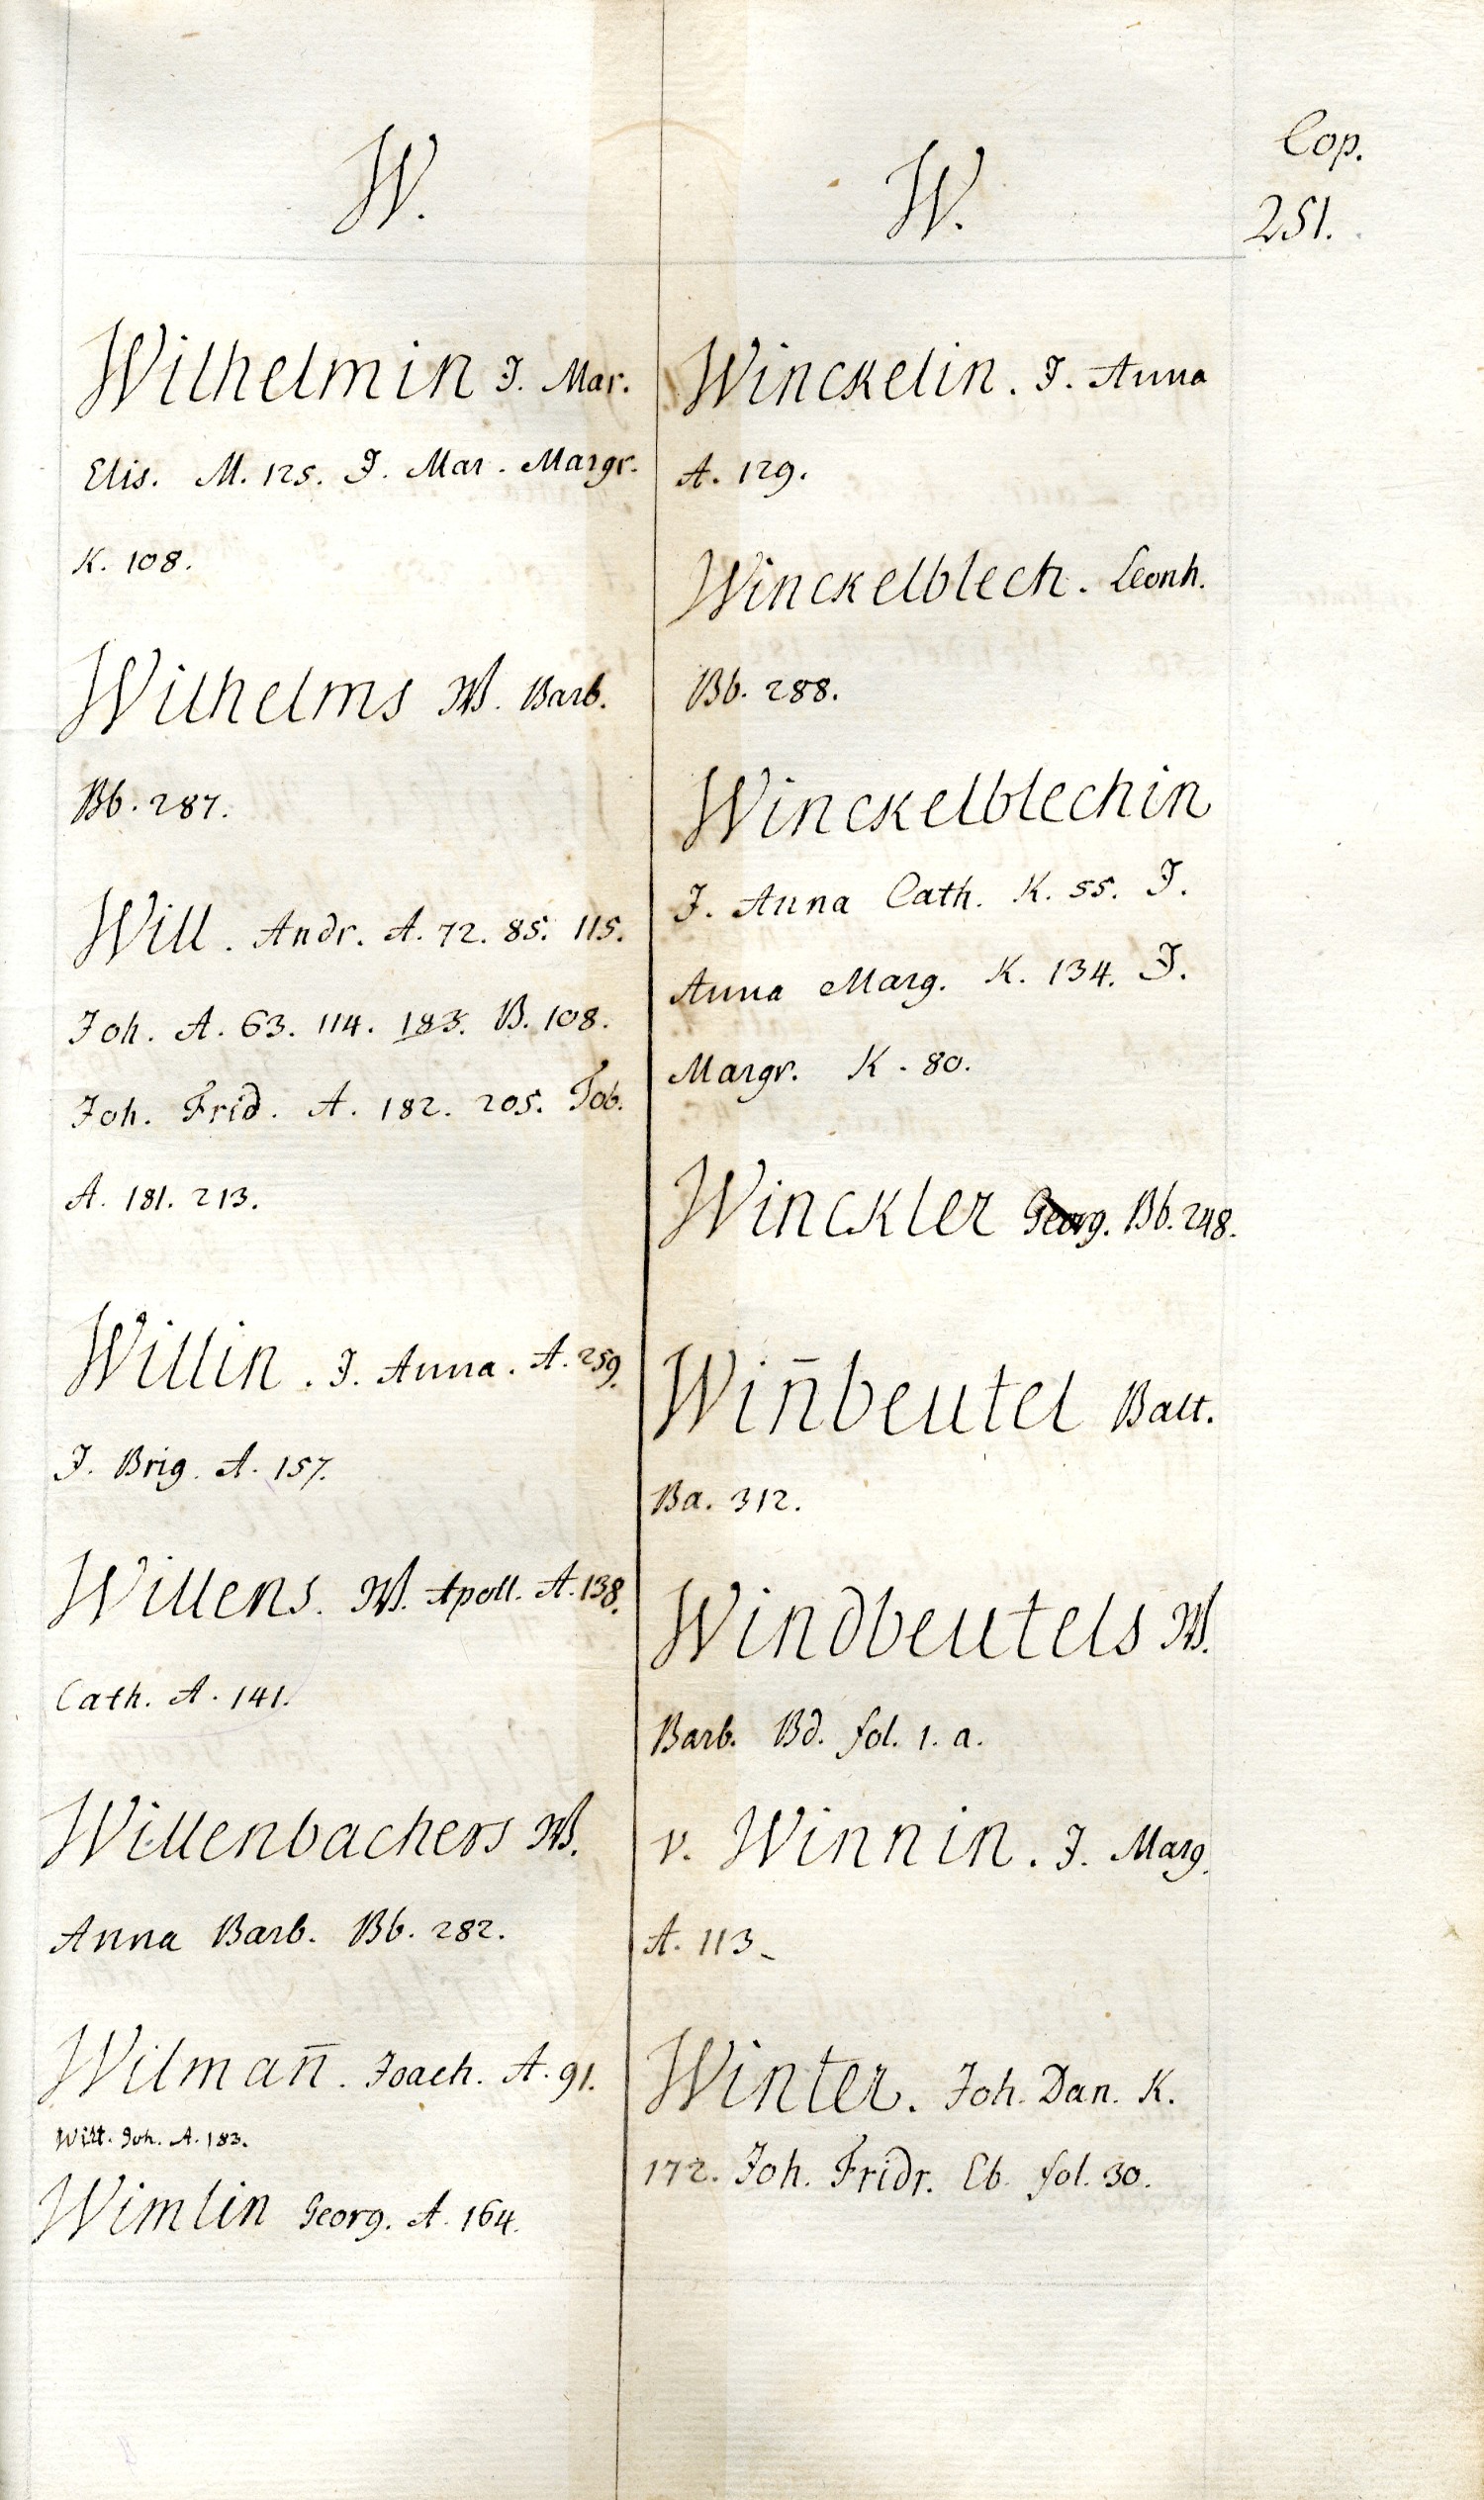 W.
Wilhelmin J. Mar.
Elis. M. 125. J. Mar. Margr.
K. 108.
Wilhelms W. Barb.
Bb. 287.
Will. Andr. A. 72. 85. 115.
Joh. A. 63. 114. 183. B. 108.
Joh. Frid. A. 182. 205. Tob.
A. 181. 213.
Willin. J. Anna. A. 259.
J. Brig. A. 157.
Willens. W. Apoll. A. 138.
Cath. A. 141.
Willenbachers W.
Anna Barb. Bb. 282.
Wilman̄. Joach. A. 91.
Wilt. Joh. A. 183.
Wimlin Georg. A. 164.
W.
Winckelin. J. Anna
A. 129.
Winckelblech. Leonh.
Bb. 288.
Winckelblechin
J. Anna Cath. K. 55. J.
Anna Marg. K. 134. J.
Margr. K. 80.
Winckler Georg. Bb. 248.
Win̄beutel Balt.
Ba. 312.
Windbeutels W.
Barb. Bd. fol. 1. a.
v. Winnin. J. Marg.
A. 113.
Winter. Joh. Dan. K.
172. Joh. Fridr. Eb. fol. 30.
Cop.
251.